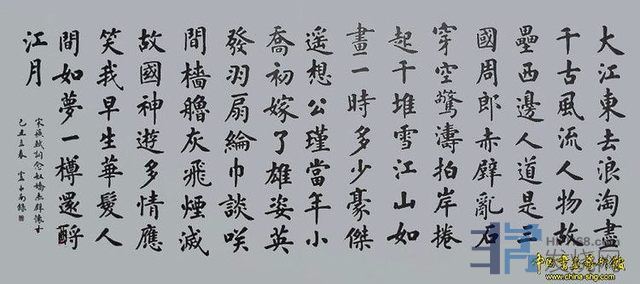 大江東去浪淘盡
千古風流人物故
壘西邊人道是三
國周郎赤壁亂石
穿空驚濤拍岸捲
起千堆雪江山如
畫一時多少豪傑
遥想公瑾當年小
喬初嫁了雄姿英
發羽扇綸巾談咲
間檣艣灰飛煙滅
故國神遊多情應
笑我早生華髮人
間如夢一樽還酹
江月
宋蘇軾詞念奴嬌赤壁懷古
己丑立春
www.china-shg.com